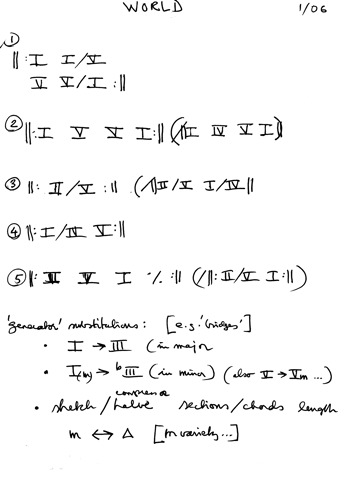 WORLD 1/06
① ‖: I I/V
V V/I :‖
② ‖: I V V I :‖ (‖ I IV V I ‖)
③ ‖: II/V :‖ (‖ II/V I/IV ‖
④ ‖: I/IV V :‖
⑤ ‖: II V I ٪ :‖ (‖: II/V I :‖)
'generator' substitutions: [e.g. 'bridges']
• I → III (in major
• I(m) → bIII (in minor) (also V → Vm ...)
• stretch/halve compress sections/chords length
m ↔ Δ [m variety...]